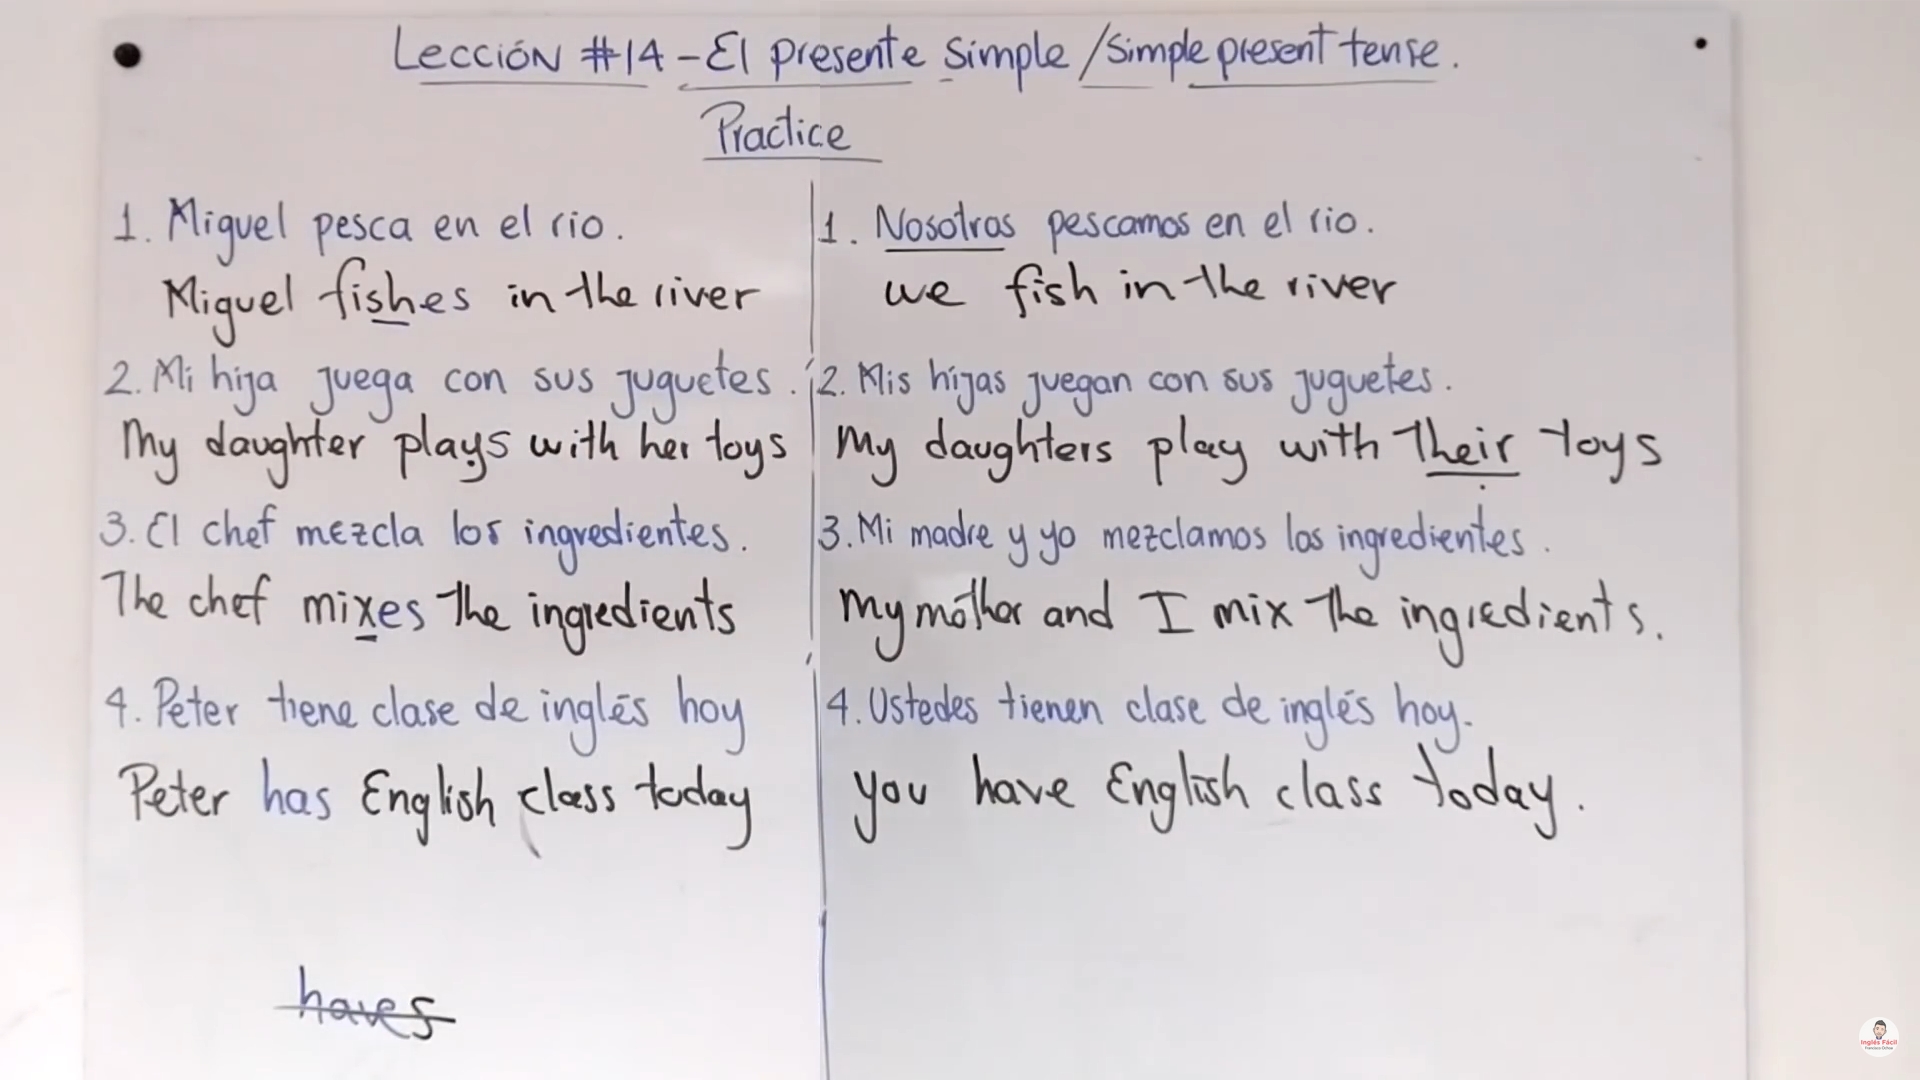 Lección #14 - El presente simple / simple present tense.
Practice
1. Miguel pesca en el rio.
Miguel fishes in the river
2. Mi hija juega con sus juguetes.
My daughter plays with her toys
3. El chef mezcla los ingredientes.
The chef mixes the ingredients
4. Peter tiene clase de inglés hoy
Peter has English class today
haves
1. Nosotros pescamos en el rio.
we fish in the river
2. Mis hijas juegan con sus juguetes.
My daughters play with their toys
3. Mi madre y yo mezclamos los ingredientes.
My mother and I mix the ingredients.
4. Ustedes tienen clase de inglés hoy.
you have English class today.
Inglés Fácil
Francisco Ochoa